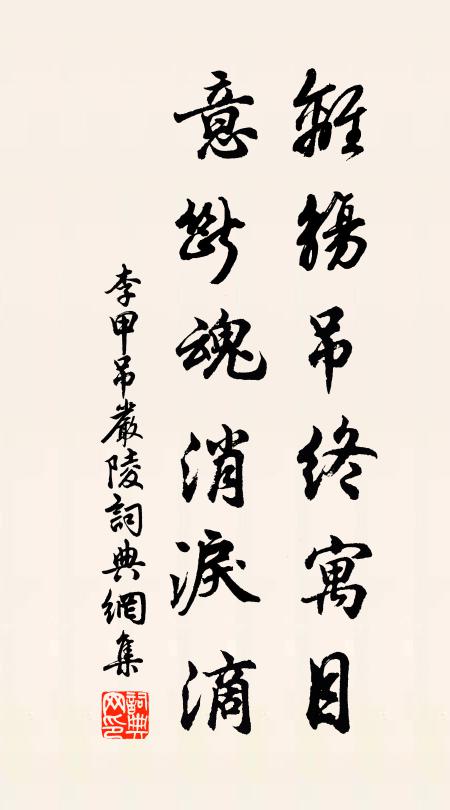 離觴吊終寓目
意斷魂消淚滴
李甲吊嚴陵詞典網集
詞典网印